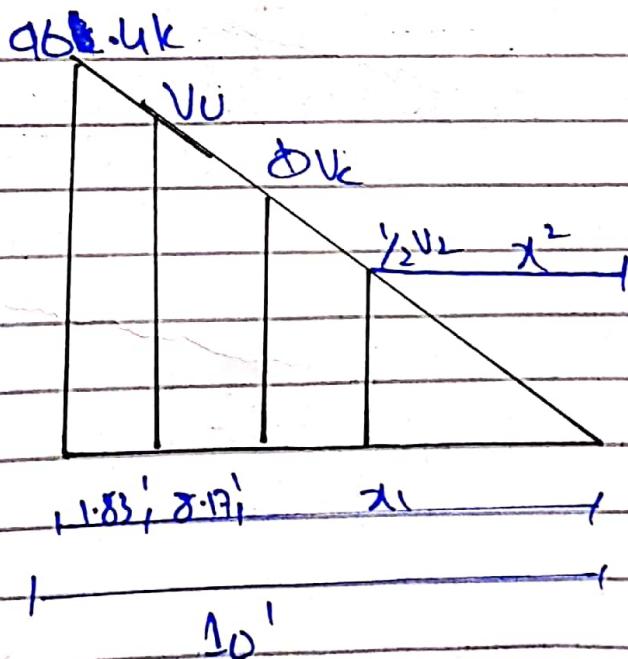 96.4k
Vu
ΦVc
1/2V2 x²
1.83' 8.17' x1
10'